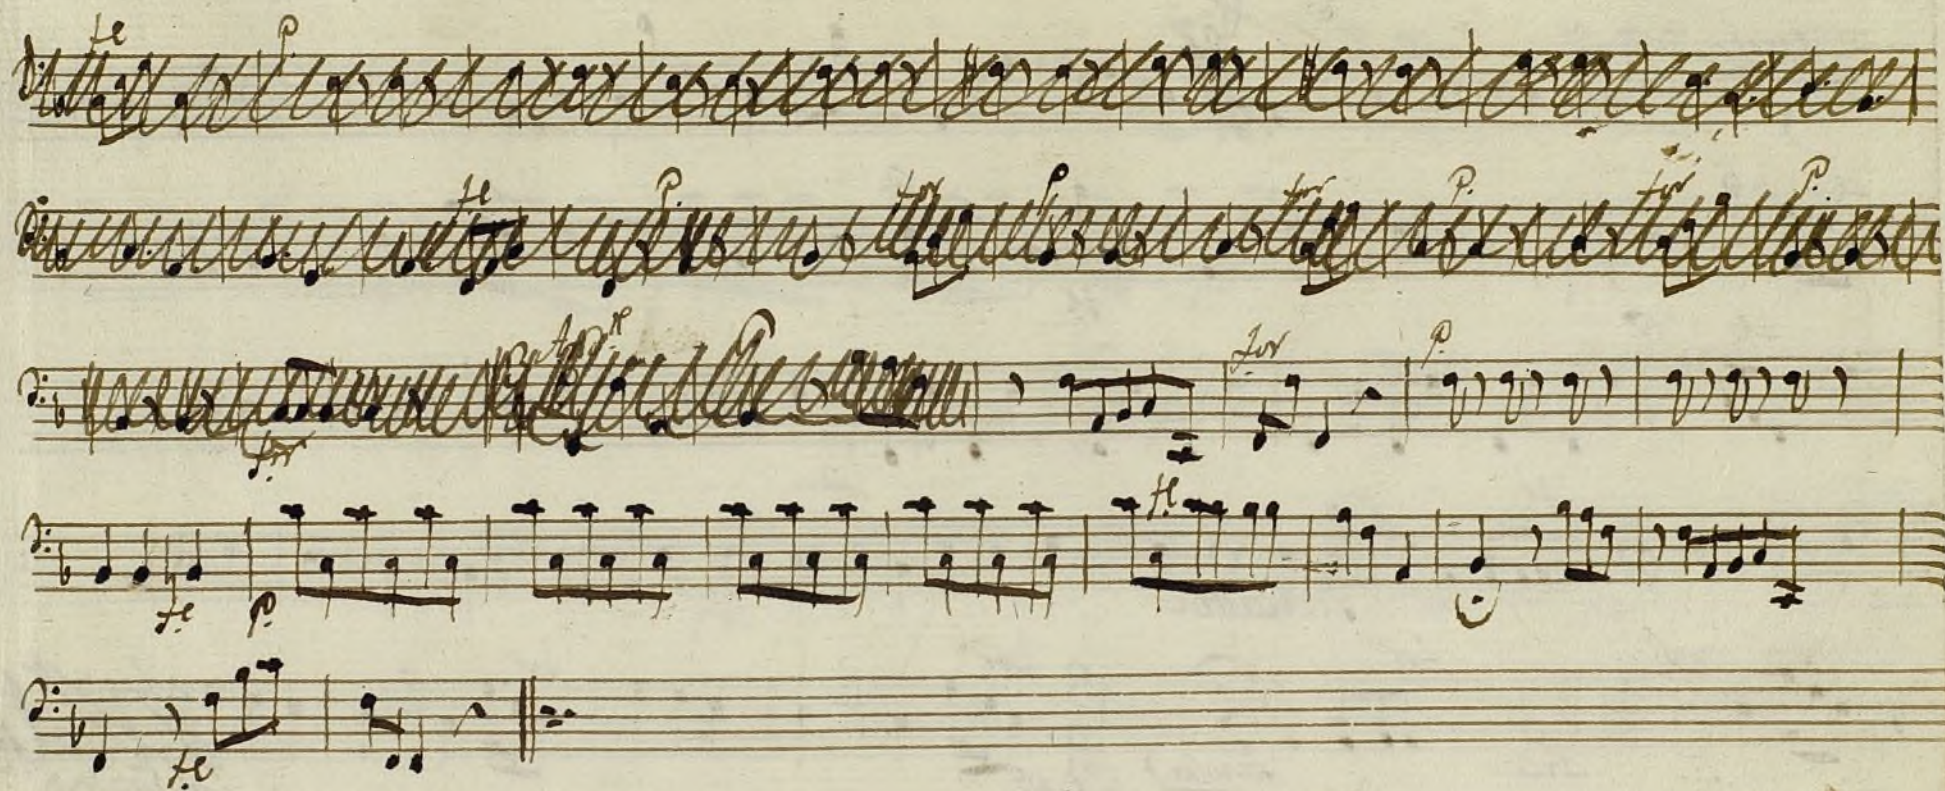 fe p.
fe p. for p. for p. for p.
for p.
for
fe
fe p.
fe